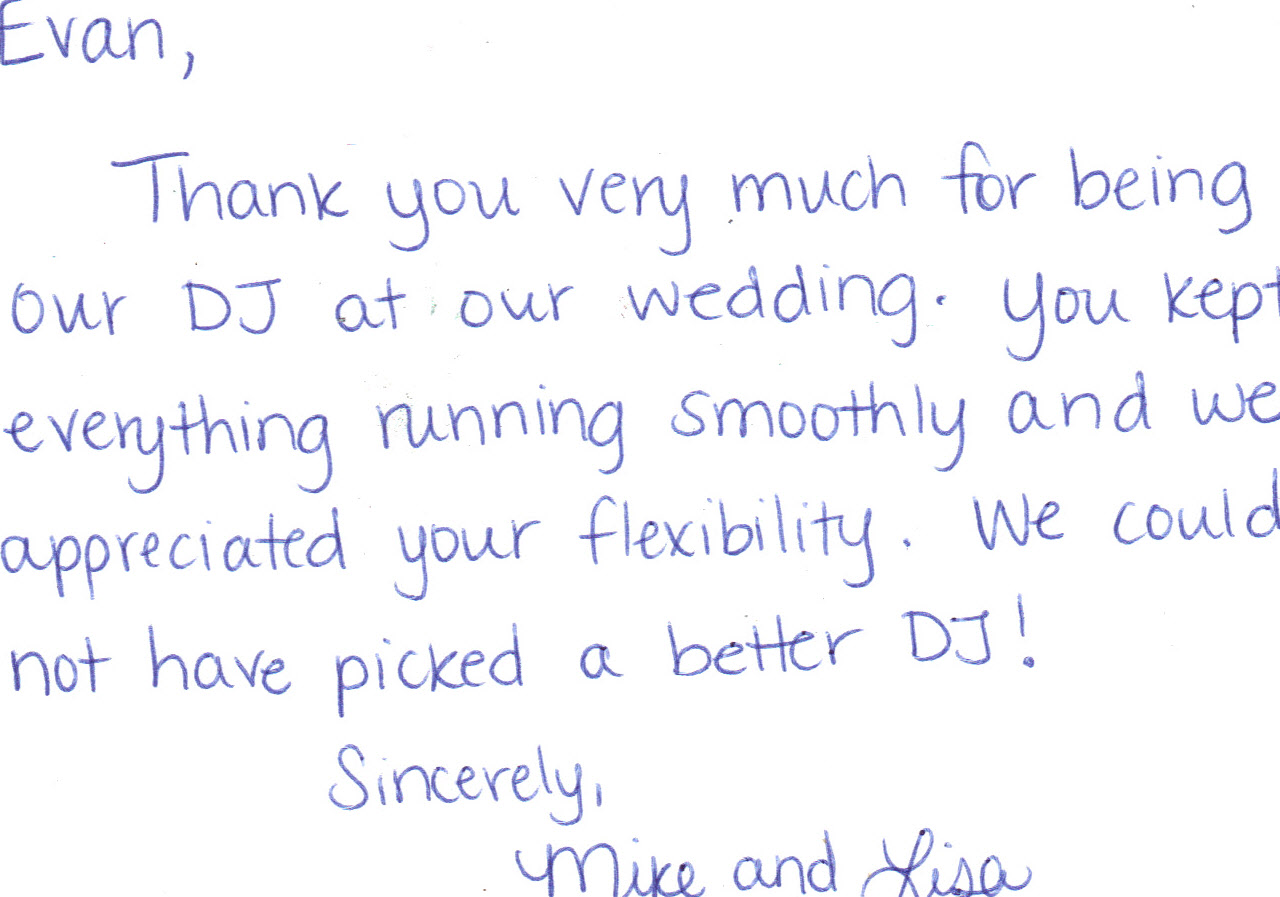 Evan,
Thank you very much for being
our DJ at our wedding. You kept
everything running smoothly and we
appreciated your flexibility. We could
not have picked a better DJ!
Sincerely,
Mike and Lisa